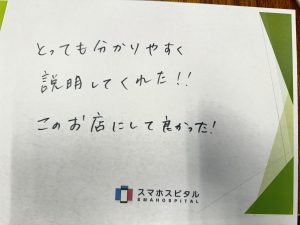 とっても分かりやすく
説明してくれた!!
このお店にして良かった!
スマホスピタル
SMAHOSPITAL